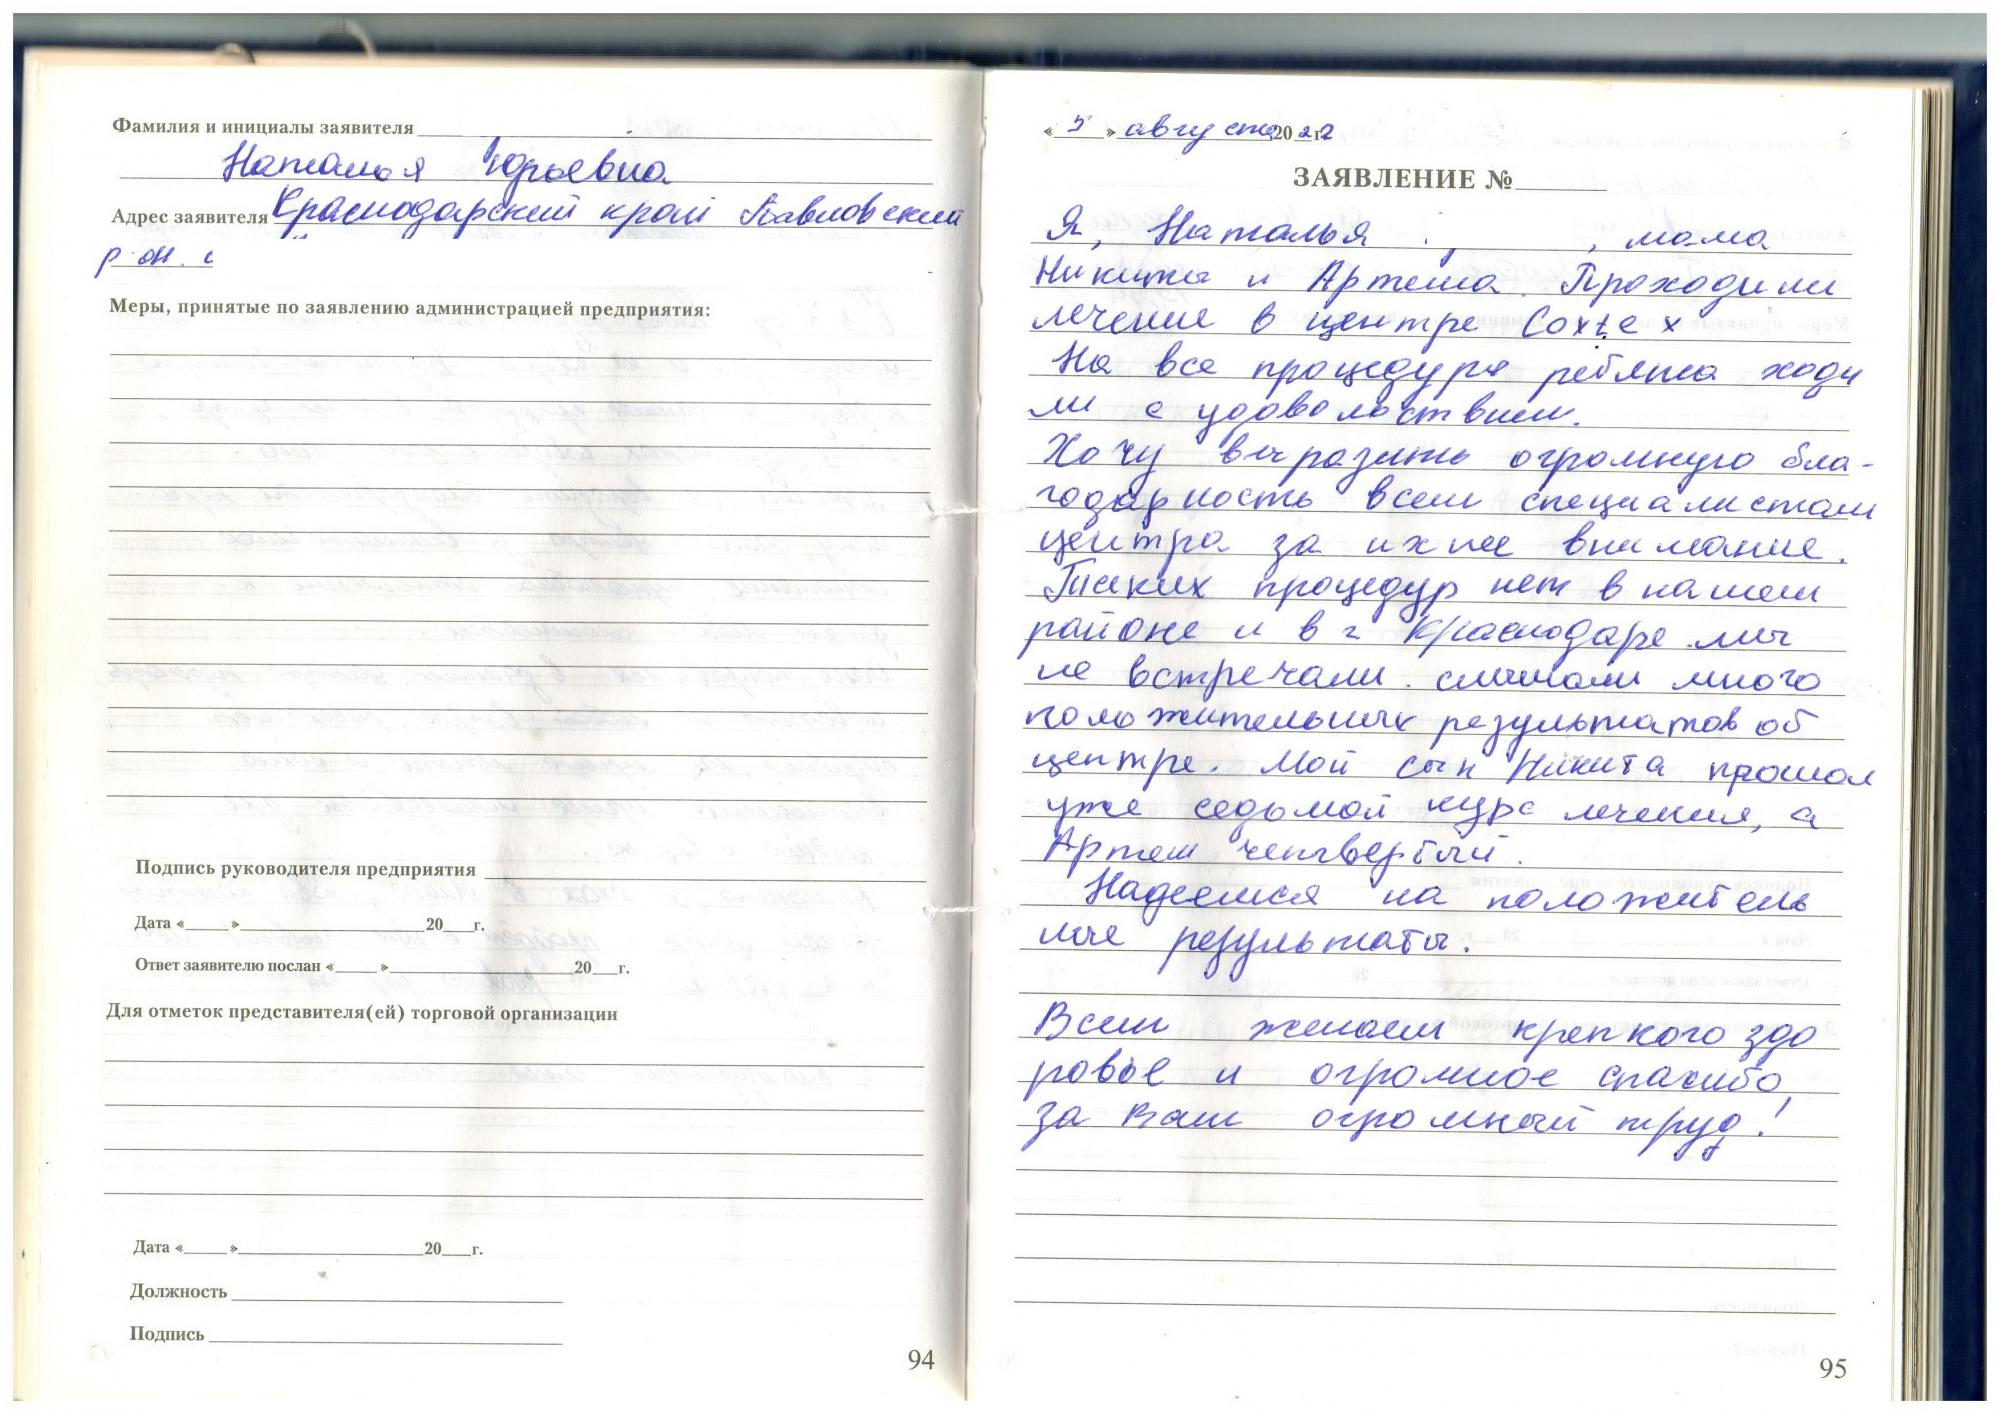 Фамилия и инициалы заявителя
Наталья Юрьевна
Адрес заявителя Краснодарский край Павловский
р-он. с
Меры, принятые по заявлению администрацией предприятия:
Подпись руководителя предприятия
Дата «____» ____ 20__г.
Ответ заявителю послан «____» ____ 20__г.
Для отметок представителя(ей) торговой организации
Дата «____» ____ 20__г.
Должность
Подпись
94
« 5 » августа 2022
ЗАЯВЛЕНИЕ №
Я, Наталья , мама
Никиты и Артема. Проходили
лечение в центре Cortex
На все процедуры ребята ходи
ли с удовольствием.
Хочу выразить огромную бла-
годарность всем специалистам
центра за ихнее внимание.
Таких процедур нет в нашем
районе и в г Краснодаре мы
не встречали. слышали много
положительных результатов об
центре. Мой сын Никита прошол
уже седьмой курс лечения, а
Артем четвертый.
Надеемся на положитель
ные результаты.
Всем желаем крепкого здо
ровье и огромное спасибо
за Ваш огромный труд!
95